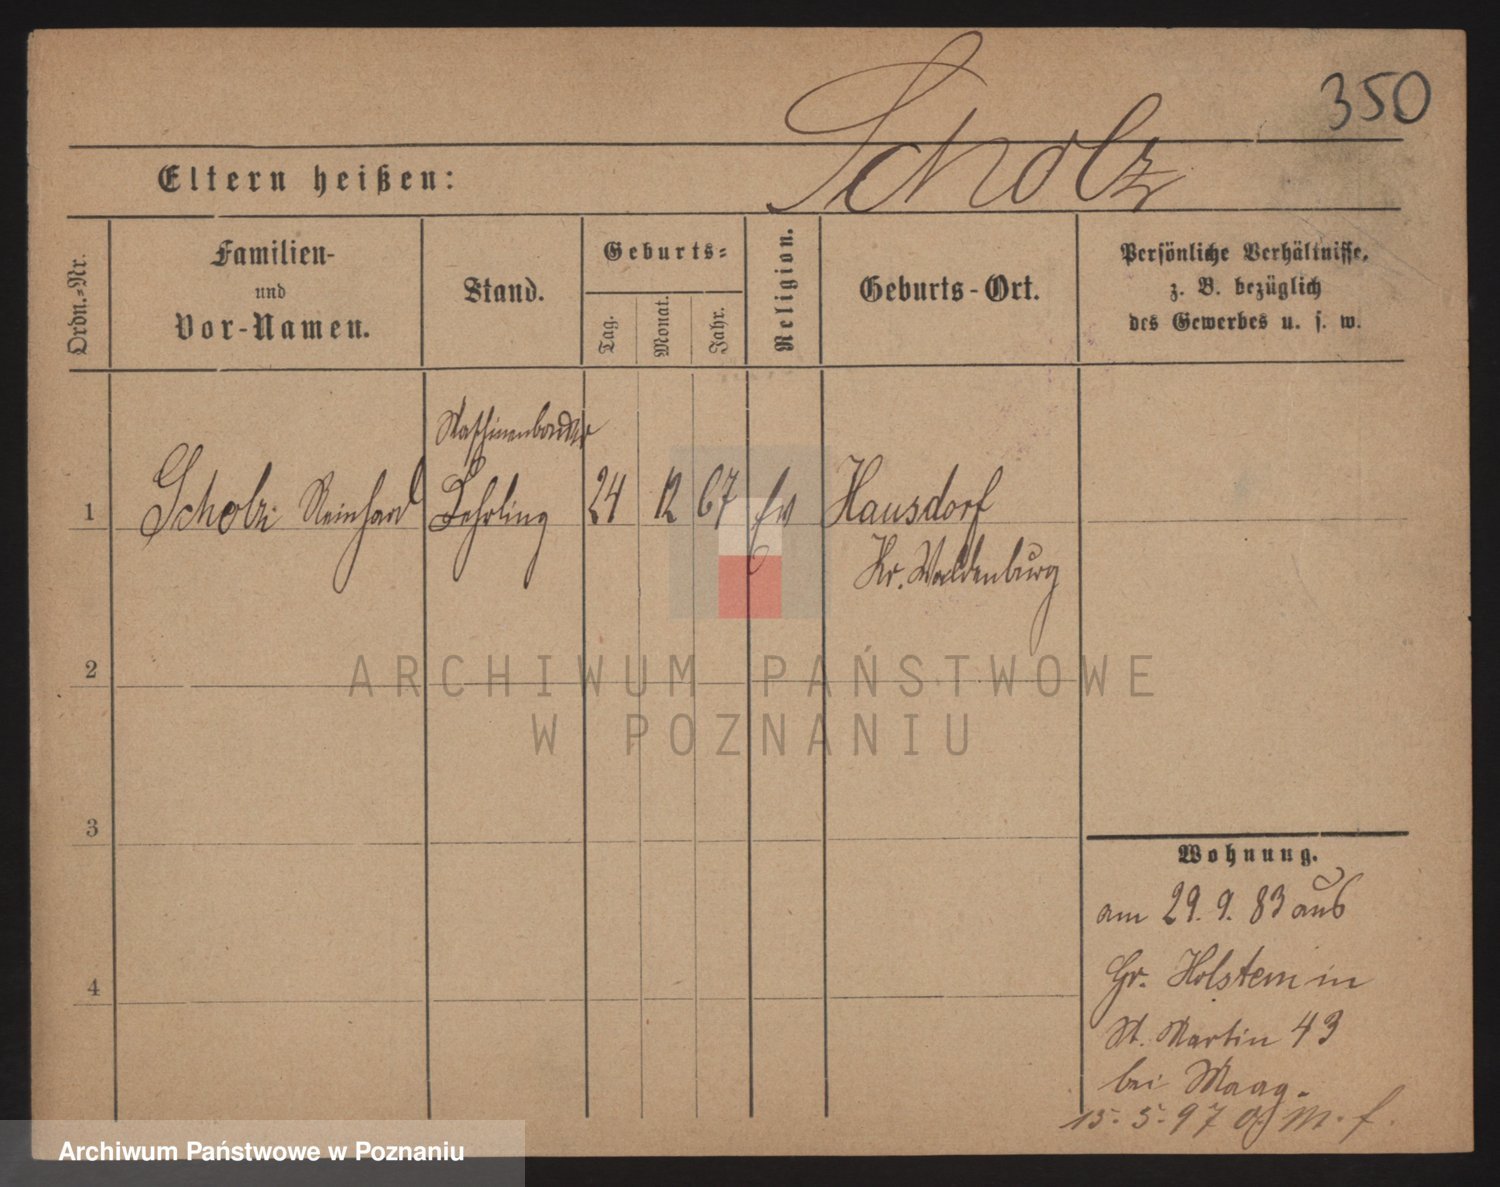 350
Scholz
Eltern heißen:
Ordn.-Nr.
Familien-
und
Vor-Namen.
Stand.
Geburts-
Tag.
Monat.
Jahr.
Religion.
Geburts-Ort.
Persönliche Verhältnisse,
z. B. bezüglich
des Gewerbes u. s. w.
Maschinenbauer
1 Scholz Reinhard Lehrling 24 12 67 ev Hausdorf
Kr. Waldenburg
2
ARCHIWUM PAŃSTWOWE
W POZNANIU
3
Wohnung.
am 29. 9. 83 aus
Gr. Holstein in
St. Martin 43
4
bei Maag.
15. 5. 97
Archiwum Państwowe w Poznaniu